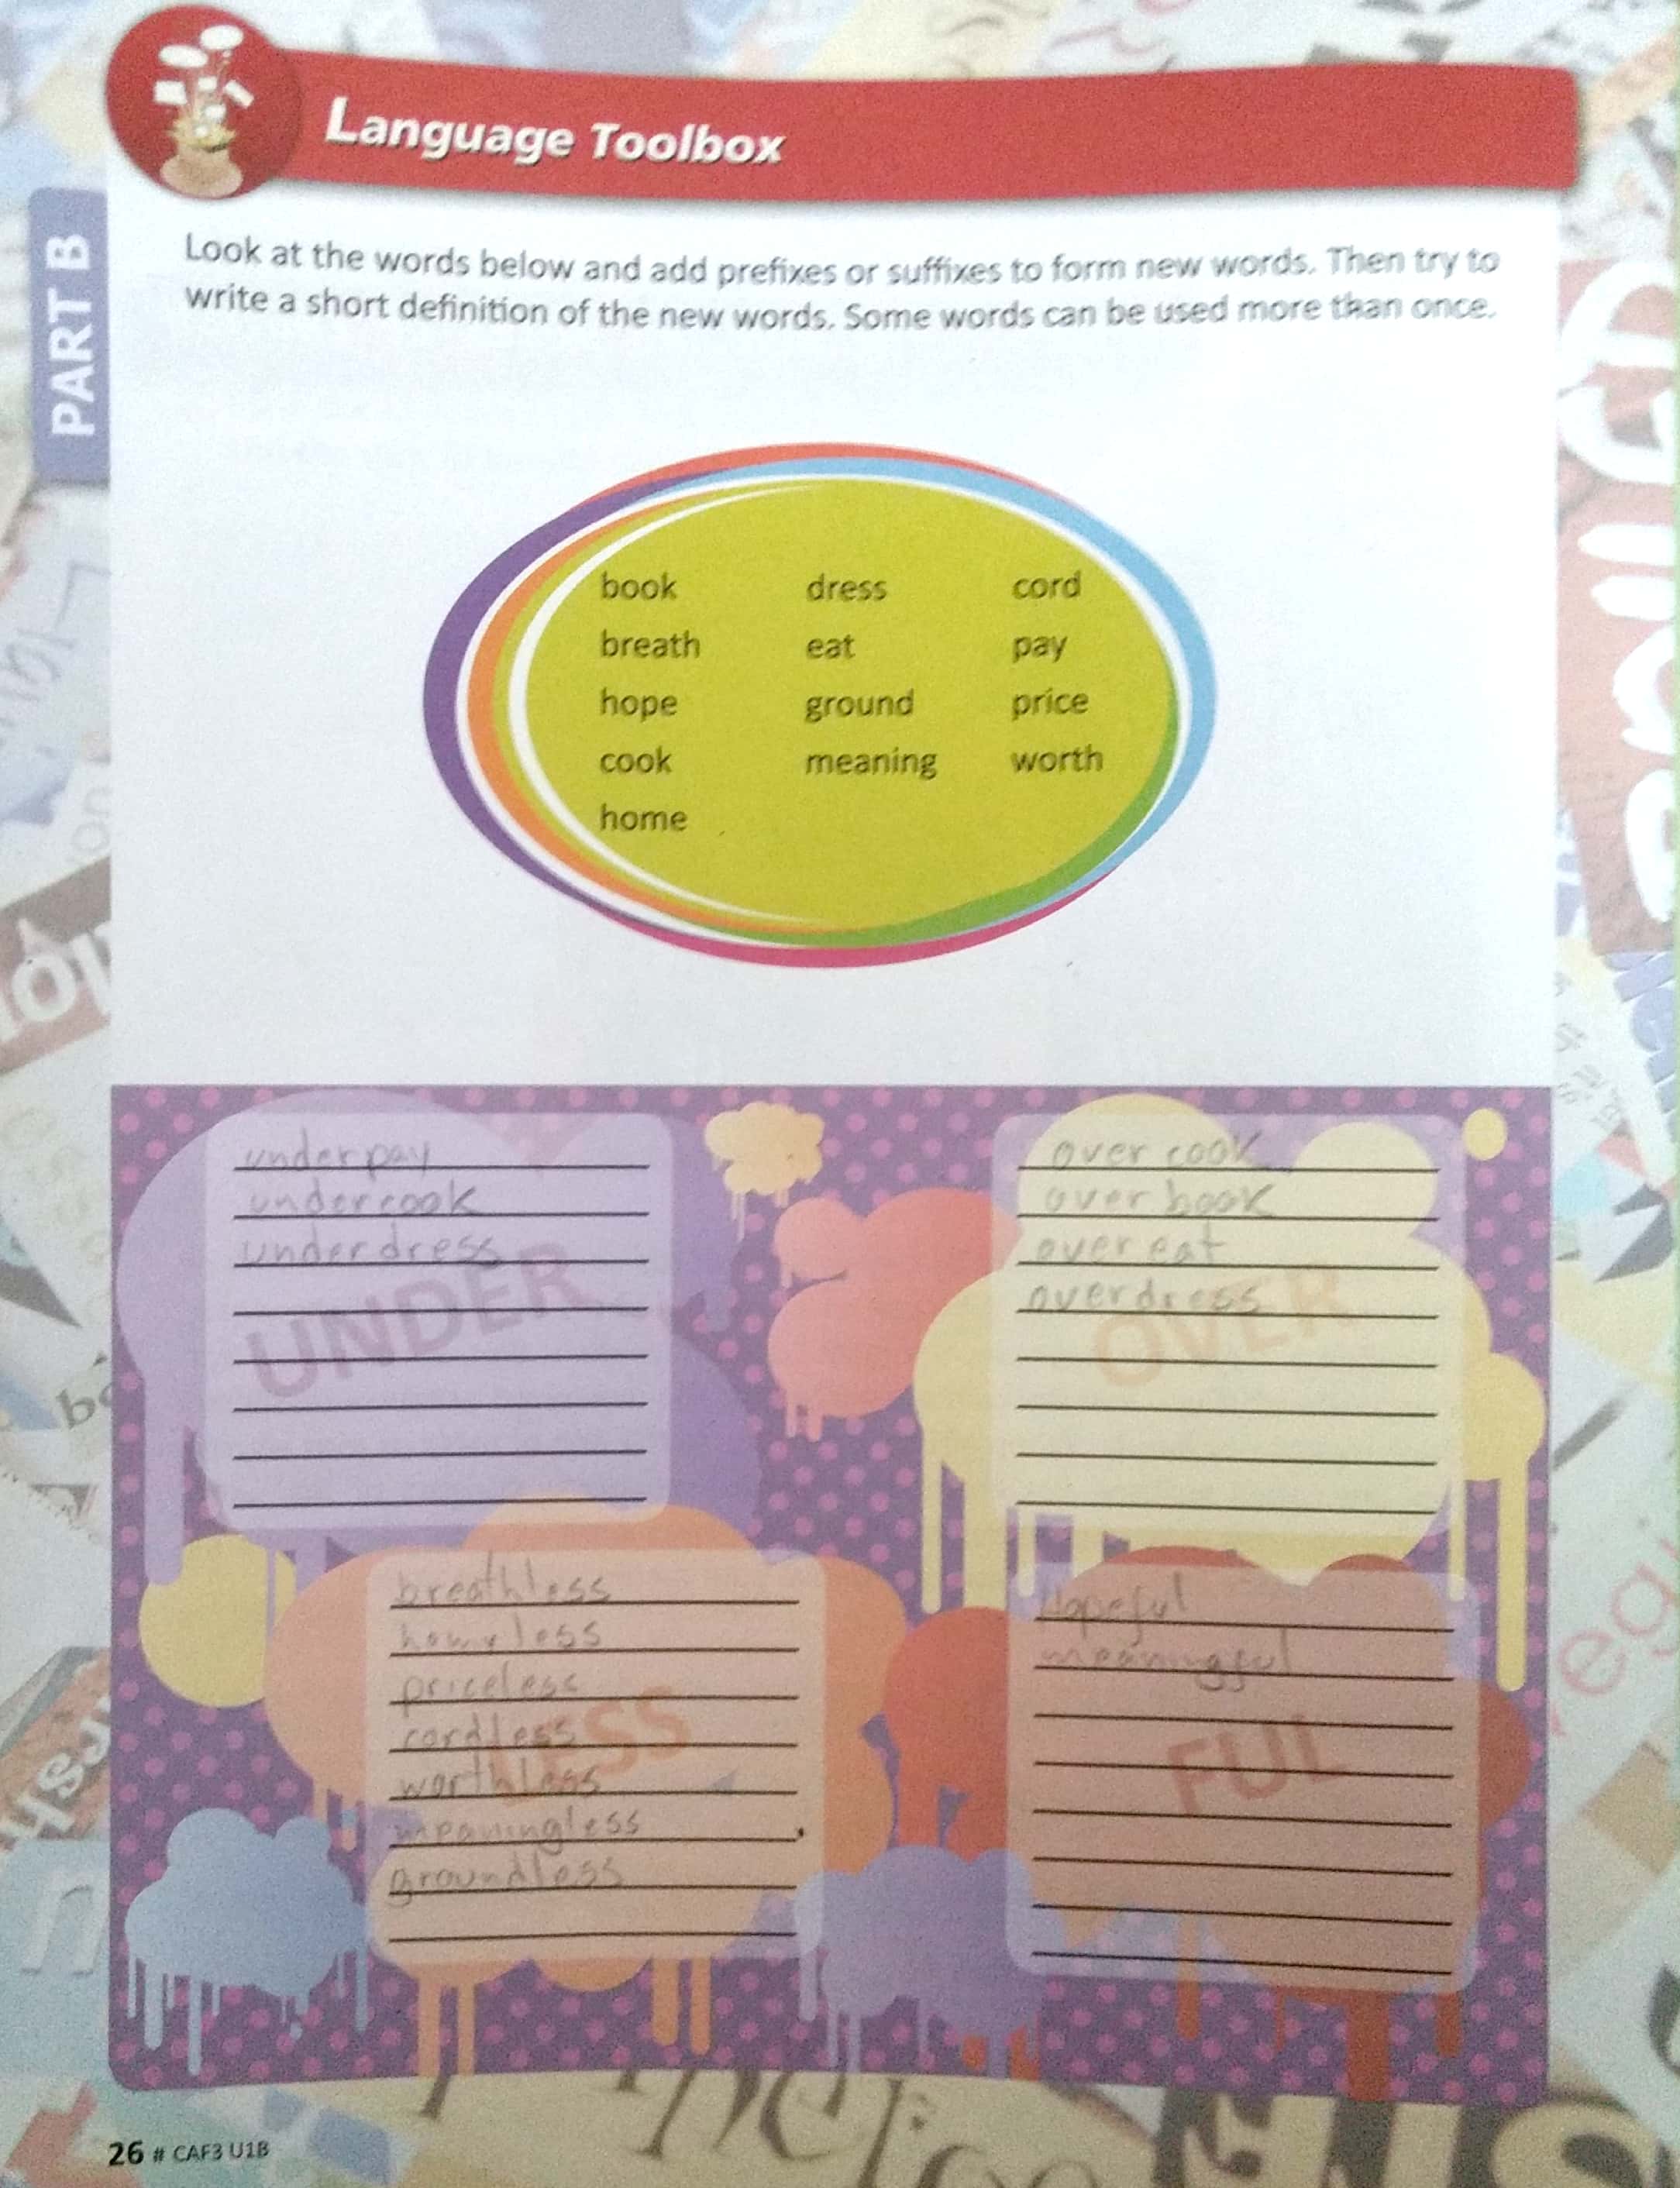 Language Toolbox
PART B
Look at the words below and add prefixes or suffixes to form new words. Then try to
write a short definition of the new words. Some words can be used more than once.
book dress cord
breath eat pay
hope ground price
cook meaning worth
home
underpay
undercook
underdress
UNDER
over cook
over book
over eat
overdress
OVER
breathless
homeless
priceless
cordless
worthless
meaningless
groundless
LESS
Hopeful
meaningful
FUL
26 # CAF3 U1B